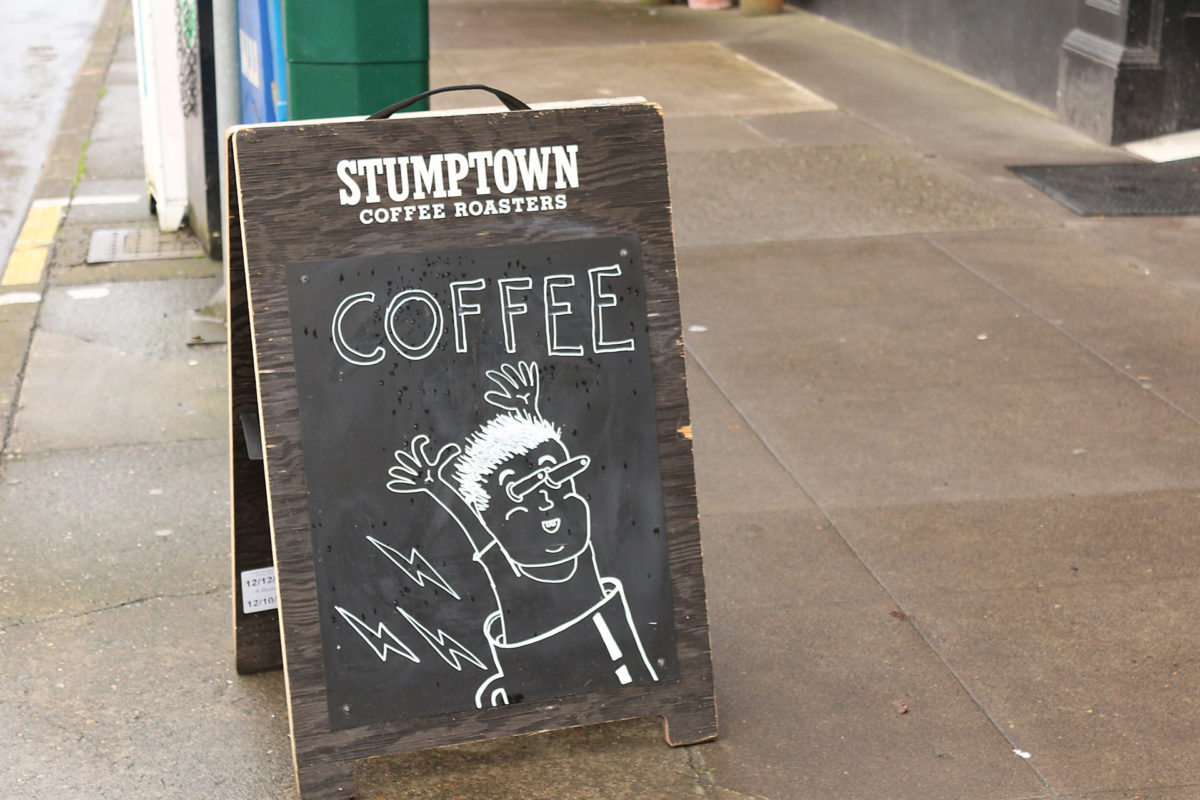 STUMPTOWN
COFFEE ROASTERS
COFFEE
12/12/
12/10/